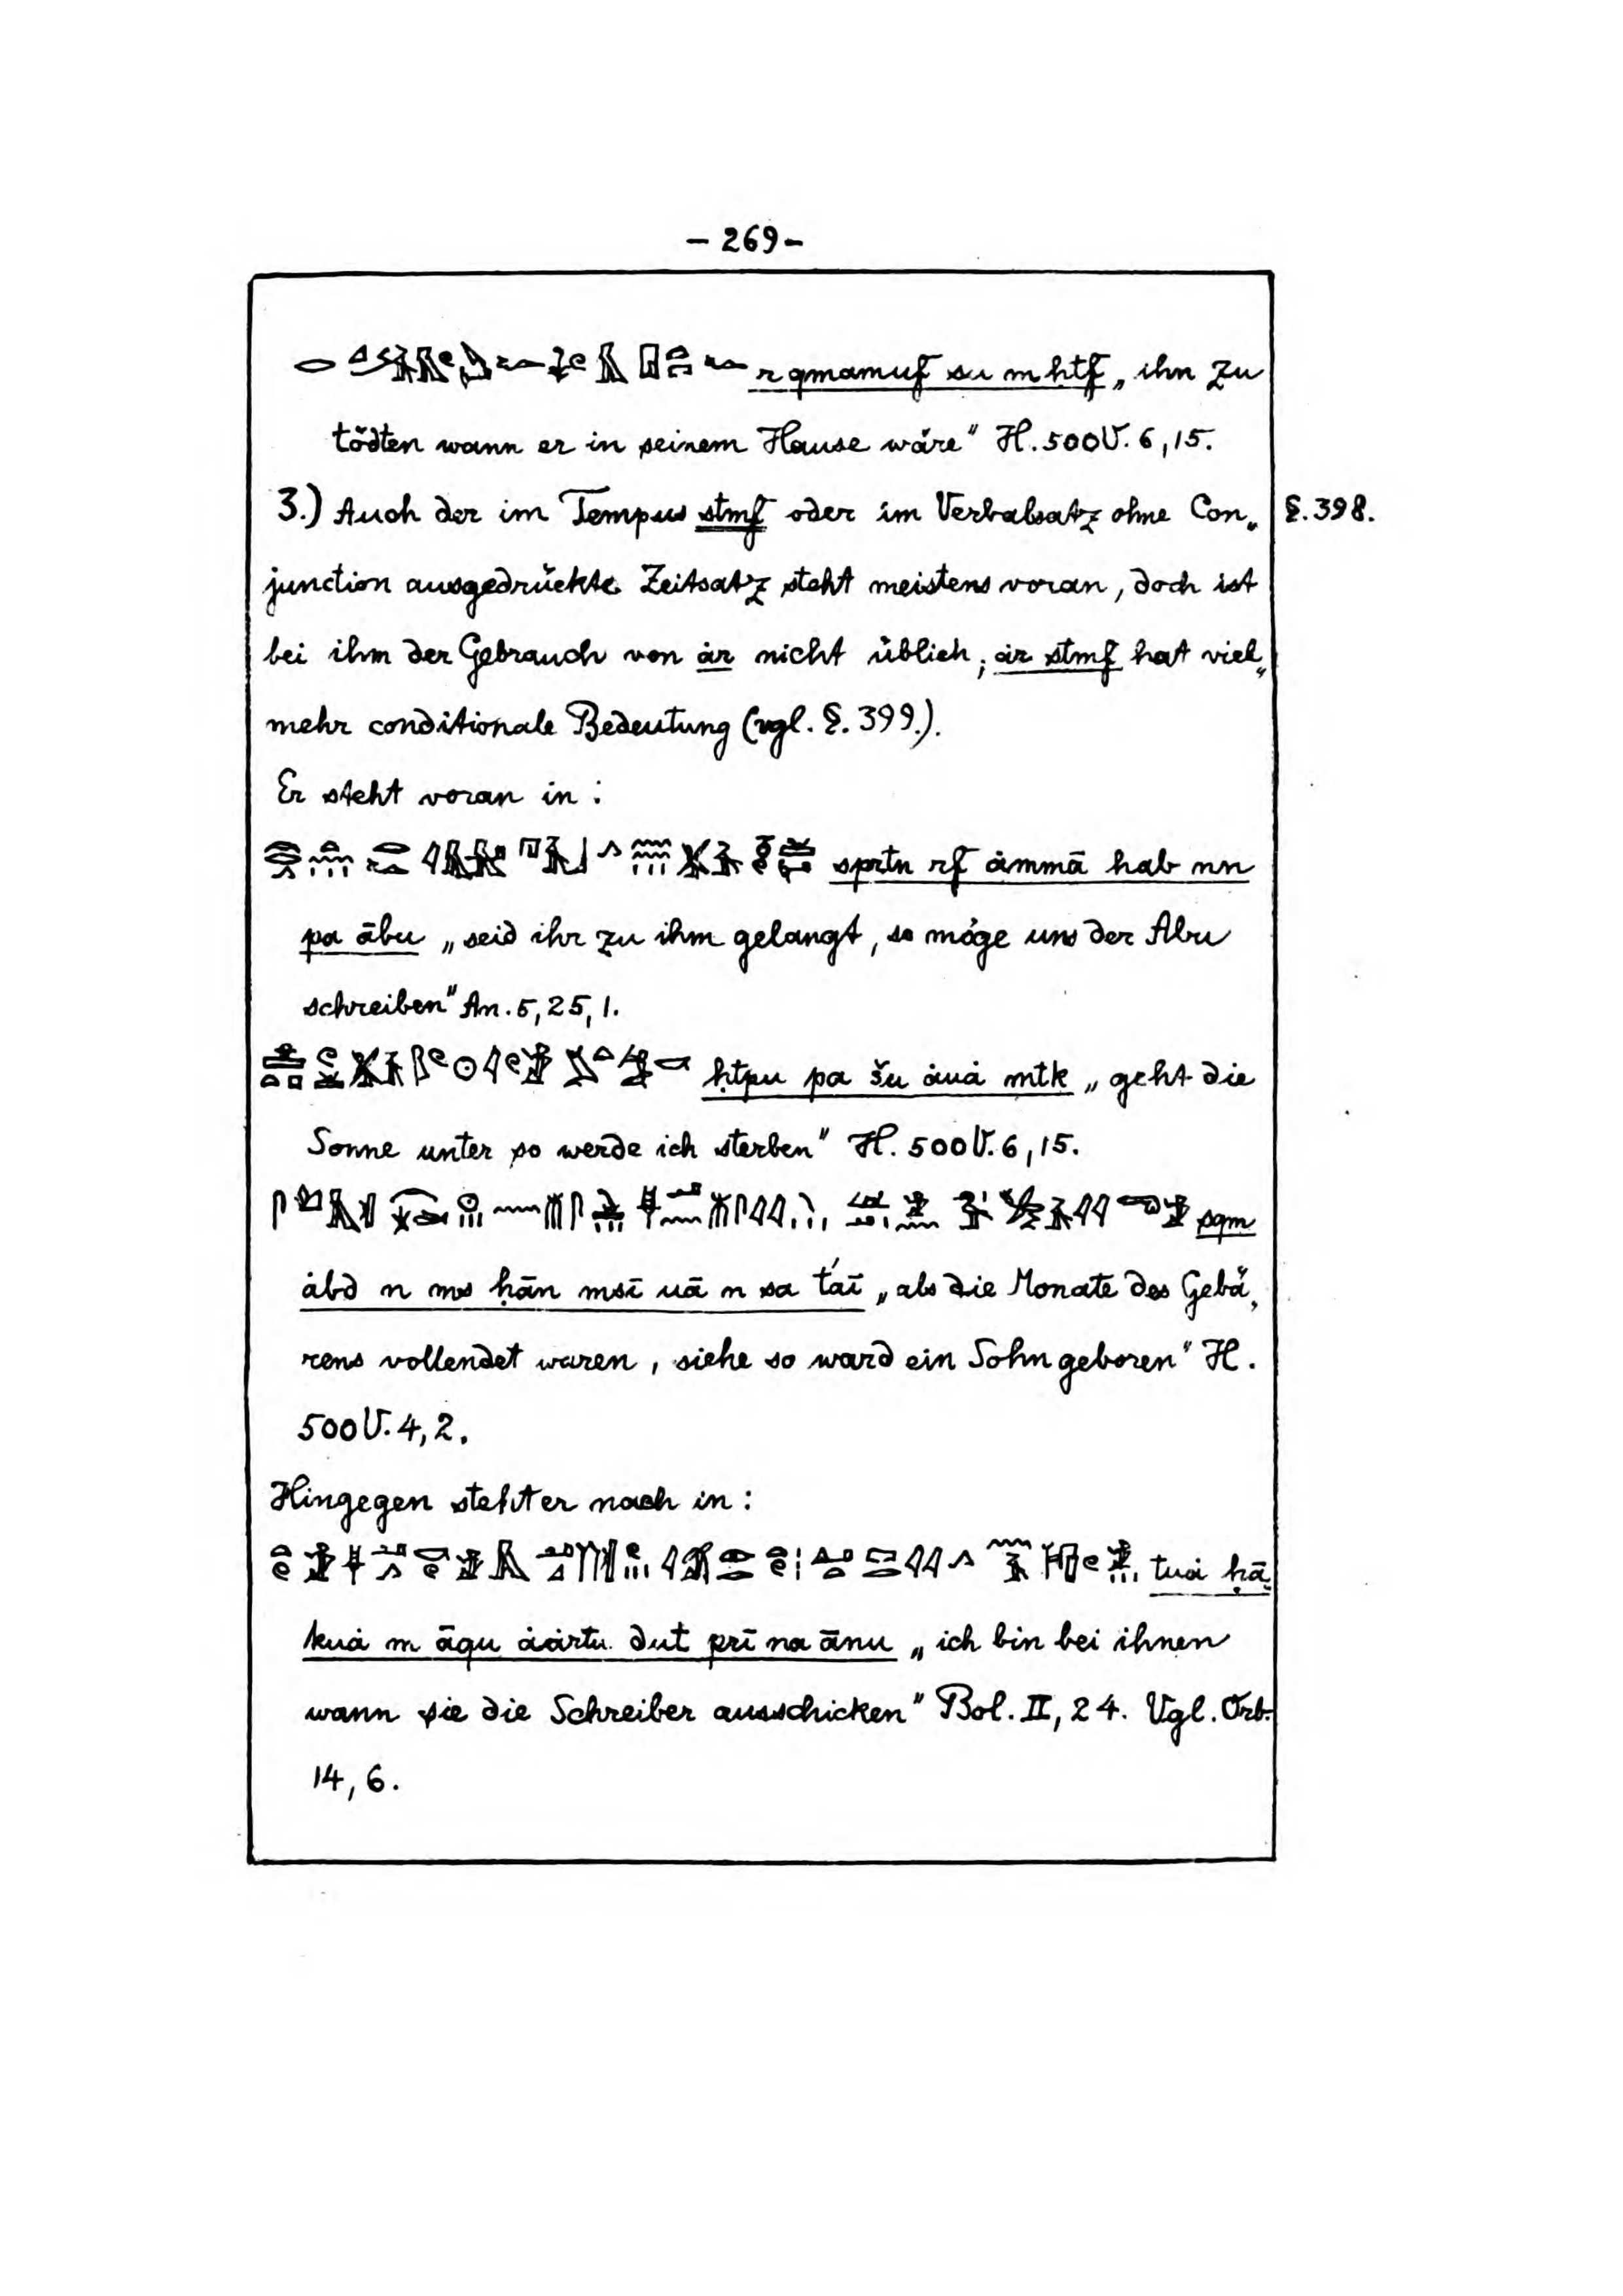 – 269 –
r qmamuf su m ḥtf „ihn zu
tödten wann er in seinem Hause wäre" H. 500 V. 6, 15.
3.) Auch der im Tempus stmf oder im Verbalsatz ohne Con„ §. 398.
junction ausgedrückte Zeitsatz steht meistens voran, doch ist
bei ihm der Gebrauch von ȧr nicht üblich; ȧr stmf hat viel„
mehr conditionale Bedeutung (vgl. §. 399.).
Er steht voran in:
sprtn rf ȧmmā hab nn
pa ābu „seid ihr zu ihm gelangt, so möge uns der Abu
schreiben" An. 5, 25, 1.
ḥtpu pa šu ȧuȧ mtk „geht die
Sonne unter so werde ich sterben" H. 500 V. 6, 15.
sqm
ȧbd n ms ḥān msī uā n sa t́aī „als die Monate des Gebä„
rens vollendet waren, siehe so ward ein Sohn geboren" H.
500 V. 4, 2.
Hingegen steht er nach in:
tuȧ ḥā„
kuȧ m āqu ȧȧrtu dut prī na ānu „ich bin bei ihnen
wann sie die Schreiber ausschicken" Bol. II, 24. Vgl. Orb.
14, 6.